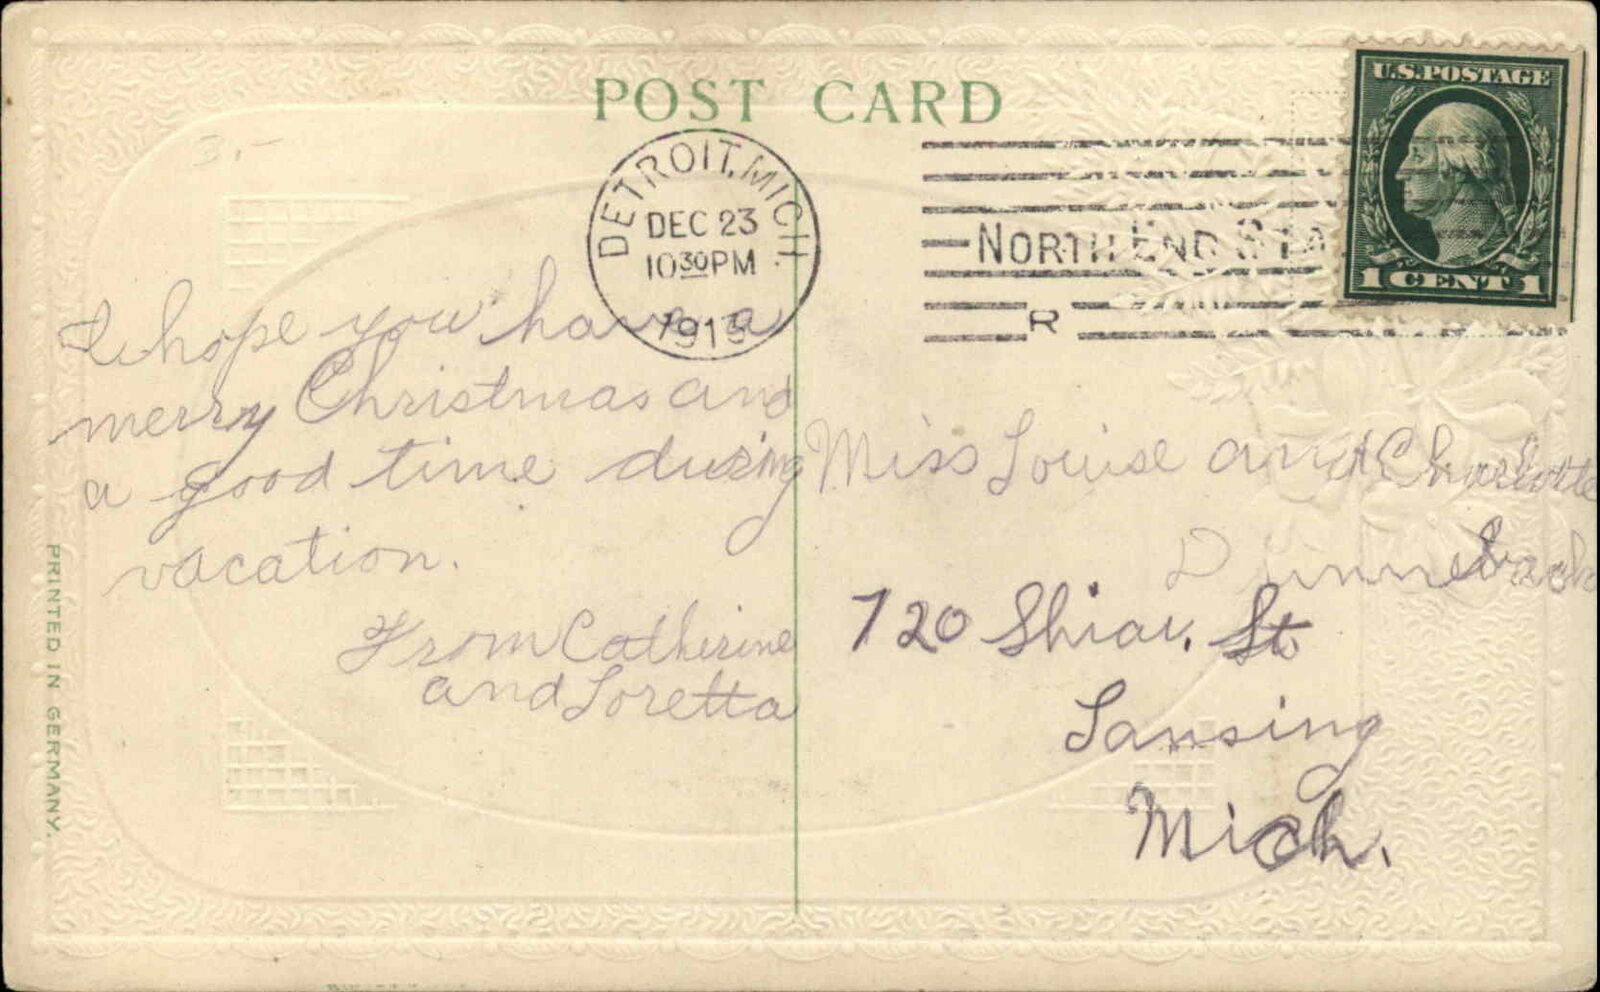 POST CARD
U.S. POSTAGE
1 CENT 1
DETROIT, MICH
DEC 23
10 30 PM
1913
NORTH END STA
R
I hope you have a
merry Christmas and
a good time during
vacation.
From Catherine
and Loretta
Miss Louise and Charlotte
720 Shiar. St
Lansing
Mich.
PRINTED IN GERMANY.